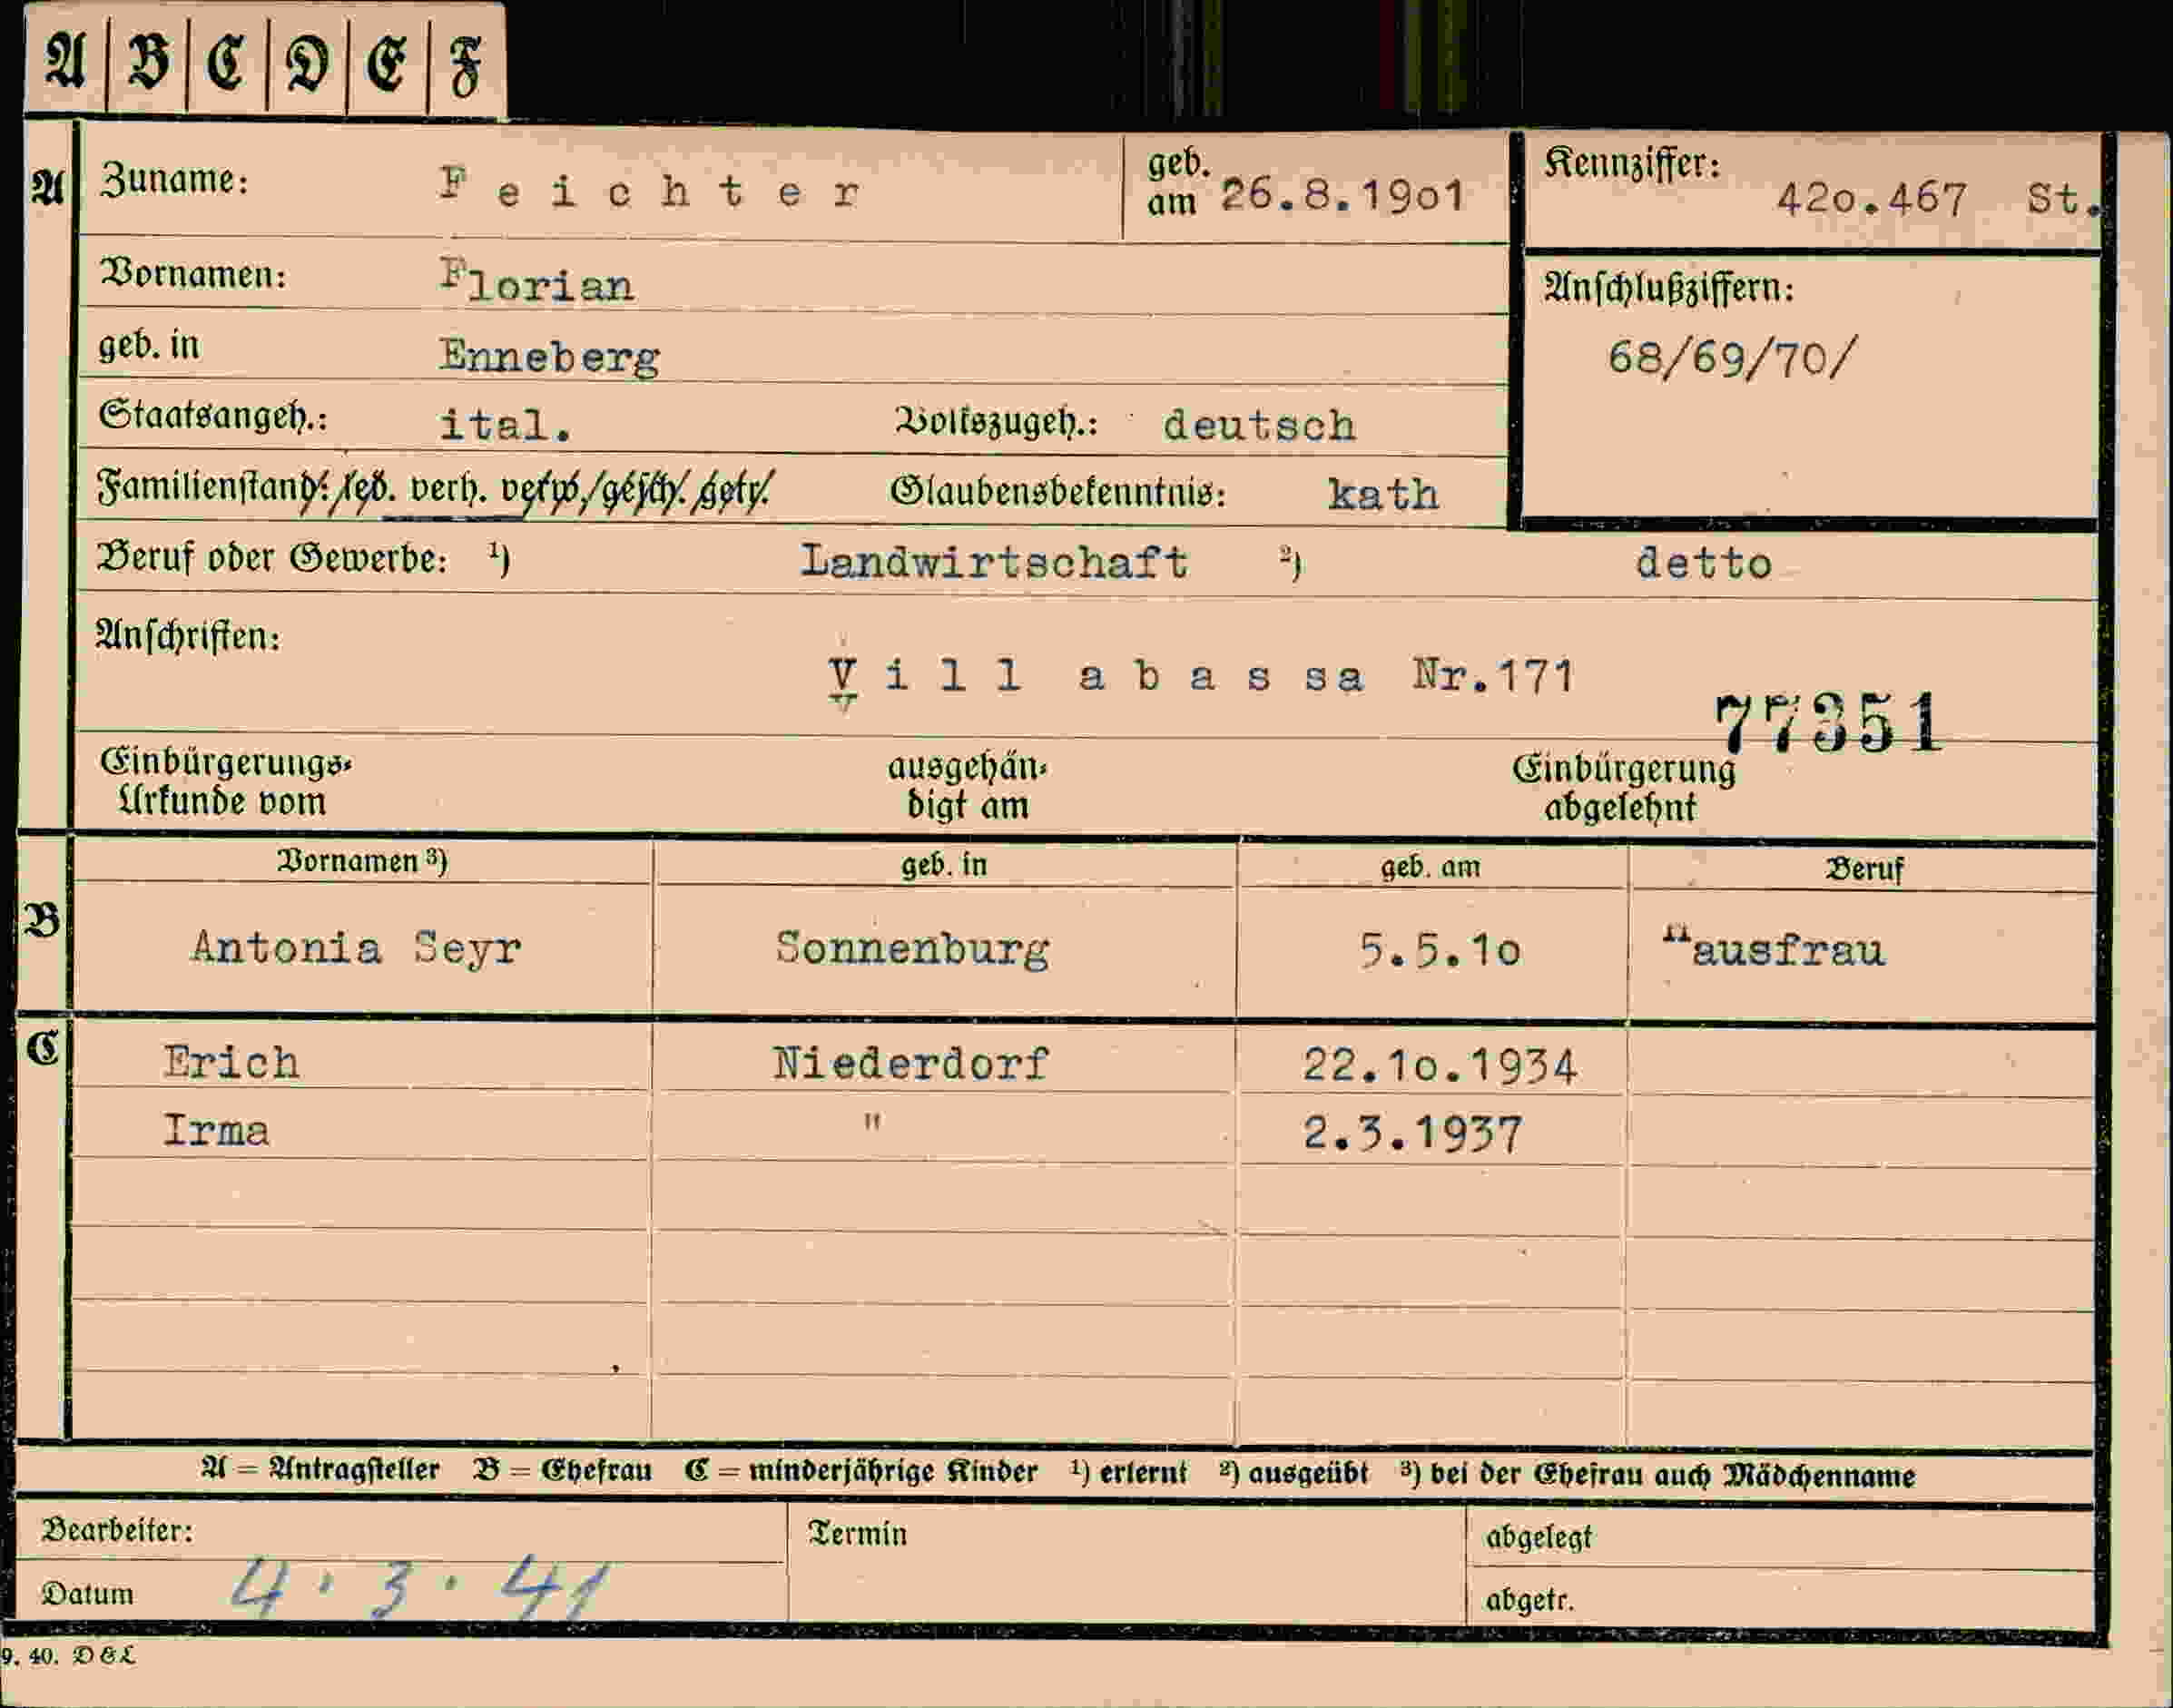 A B C D E F
A Zuname: Feichter geb. am 26.8.19o1 Kennziffer: 42o.467 St.
Vornamen: Florian Anschlußziffern:
geb. in Enneberg 68/69/70/
Staatsangeh.: ital. Volkszugeh.: deutsch
Familienstand: led. verh. verw. gesch. getr. Glaubensbekenntnis: kath
Beruf oder Gewerbe: 1) Landwirtschaft 2) detto
Anschriften:
Villabassa Nr.171
77351
Einbürgerungs- ausgehän- Einbürgerung
Urkunde vom digt am abgelehnt
Vornamen 3) geb. in geb. am Beruf
B Antonia Seyr Sonnenburg 5.5.1o Hausfrau
C Erich Niederdorf 22.1o.1934
Irma " 2.3.1937
A = Antragsteller B = Ehefrau C = minderjährige Kinder 1) erlernt 2) ausgeübt 3) bei der Ehefrau auch Mädchenname
Bearbeiter: Termin abgelegt
Datum 4.3.41 abgetr.
9. 40. D & L